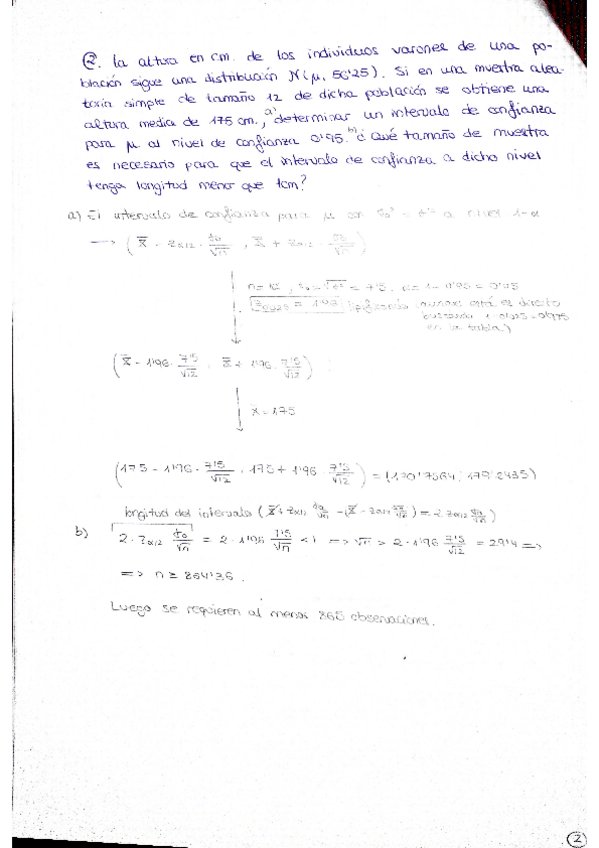 2. La altura en cm. de los individuos varones de una po-
blación sigue una distribución N(μ, 56'25). Si en una muestra alea-
toria simple de tamaño 12 de dicha población se obtiene una
altura media de 175 cm., a) determinar un intervalo de confianza
para μ al nivel de confianza 0'95. b) ¿Qué tamaño de muestra
es necesario para que el intervalo de confianza a dicho nivel
tenga longitud menor que 1cm?
a) El intervalo de confianza para μ con a nivel 1-α
→ (x̄ - zα/2 · σ0/√n , x̄ + zα/2 · σ0/√n)
n=12, = 7'5, α = 1-0'95 = 0'05
= 1'96 directo
buscando 1-0'025=0'975
en la tabla)
(x̄ - 1'96 · 7'5/√12 , x̄ + 1'96 · 7'5/√12)
x̄ = 175
(175 - 1'96 · 7'5/√12 , 175 + 1'96 · 7'5/√12) = (170'7564, 179'2435)
longitud del intervalo (x̄ + zα/2 σ0/√n - (x̄ - zα/2 σ0/√n) = 2 zα/2 σ0/√n)
b) 2 · zα/2 σ0/√n = 2 · 1'96 7'5/√n < 1 => √n > 2 · 1'96 7'5/√12 = 29'4 =>
=> n ≥ 864'36.
Luego se requieren al menos 865 observaciones.
2